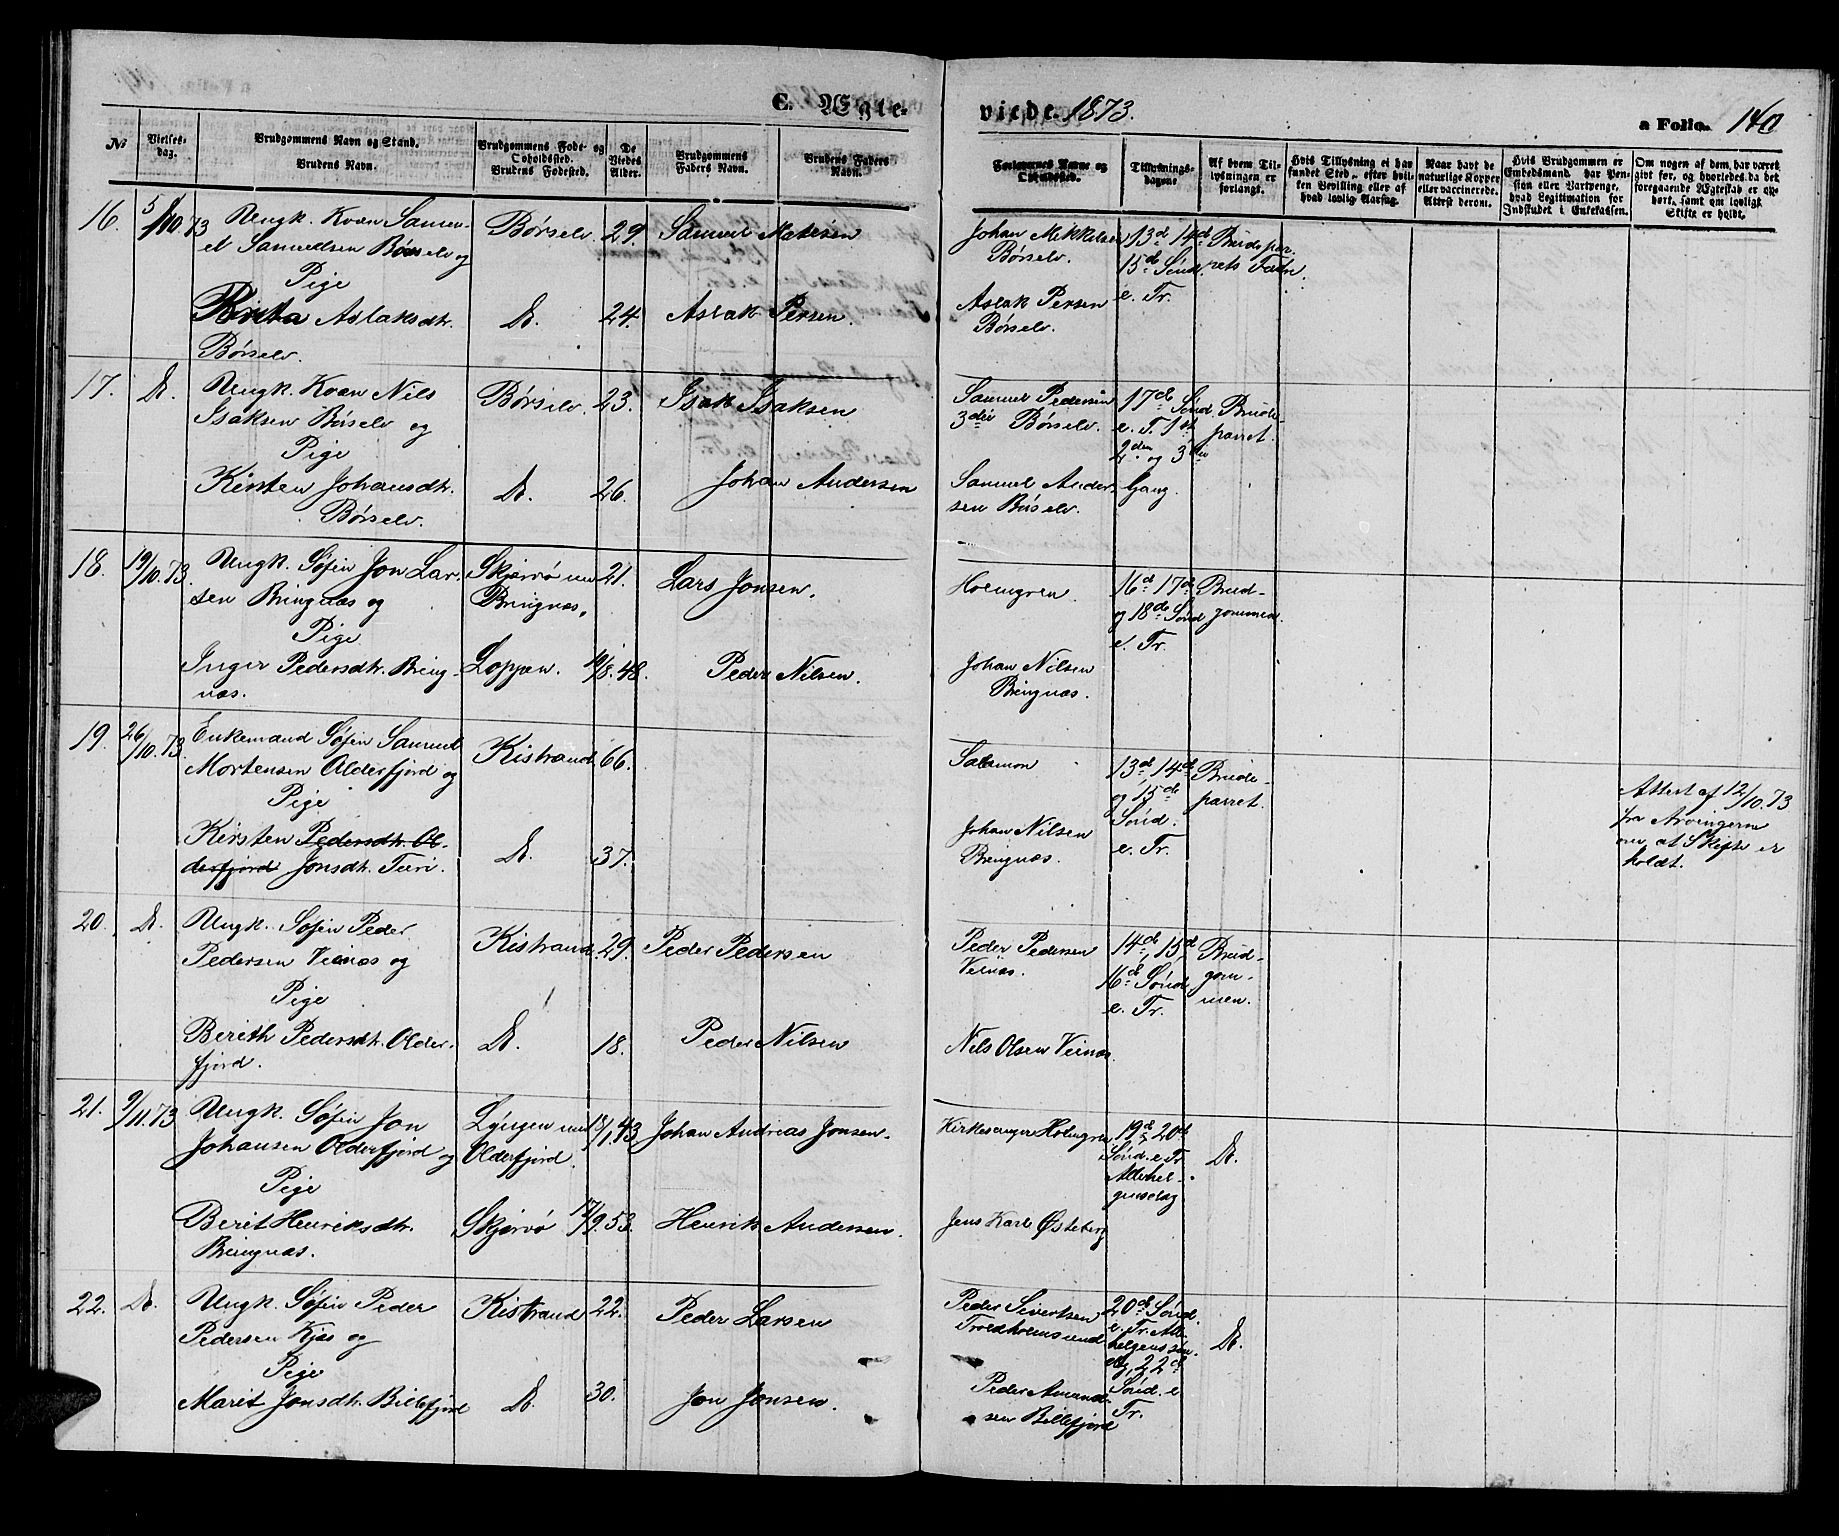 C. Ægte-
viede. 1873.
a Folio. 140
No
Vielses-dag.
Brudgommens Navn og Stand.
Brudens Navn.
Brudgommens Føde- og Opholdssted.
Brudens Fødested.
De Viedes Alder.
Brudgommens Faders Navn.
Brudens Faders Navn.
Forlovernes Navne og Opholdssted.
Tillysnings-dagene
Af hvem Tillysningen er forlangt.
Hvis Tillysning ei har fundet Sted, efter hvilken Bevilling eller af hvad lovlig Aarsag.
Naar havt de naturlige Kopper eller vaccinerede. Attest derom.
Hvis Brudgommen er Embedsmand, har Pension eller Vartpenge, hvad Legitimation for Indskudet i Enkekassen.
Om nogen af dem har været gift før, og hvorledes da det foregaaende Ægteskab er ophørt, samt om lovligt Skifte er holdt.
16. 5/10 73 Ungk. Kvæn Samu- Børselv. 29. Samuel Matisen Johan Mikkelsen 13de 14de Brudepar-
el Samuelsen Børselv og Børselv. 15de Sønd. rets Fædre.
Pige e. Tr.
Brita Aslaksdtr. Do. 24. Aslak Persen. Aslak Persen
Børselv. Børselv.
17. Do. Ungk. Kvæn Nils Børselv. 23. Isak Isaksen Samuel Pedersen 17de Sønd. Brude-
Isaksen Børselv og 3die Børselv. e. T. 1st parret.
Pige 2den og 3die
Kirsten Johansdtr. Do. 26. Johan Andersen Samuel Ander- Gang.
Børselv. sen Børselv.
18. 19/10.73. Ungk. Søfin Jon Lar- Skjervø nu 21. Lars Jonsen. Holmgren. 16de 17de Brud-
sen Bringnæs og Bringnæs. og 18de Sønd gommen.
Pige e. Tr.
Inger Pedersdtr. Bring- Loppen. 19/8.48. Peder Nilsen. Johan Nilsen
næs. Bringnæs.
19. 26/10.73. Enkemand Søfin Samuel Kistrand. 66. Salamon 13de, 14de Brude-
Mortensen Olderfjord og og 15de parret. Attest af 12/10.73
Pige Sønd. fra Arvingerne
Kirsten Pedersdtr. Ol- Do. 37. Johan Nilsen e. Tr. om, at Skifte er
derfjord Jonsdtr. Bringnæs. holdt.
20. Do. Ungk. Søfin Peder Kistrand. 29. Peder Pedersen Peder Pedersen 14de, 15de Brud-
Pedersen Veinæs og Veinæs. 16de Sønd gom-
Pige e. Tr. men.
Berith Pedersdtr. Older- Do. 18. Peder Nilsen Nils Olsen Veinæs
fjord.
21. 9/11.73 Ungk. Søfin Jon Lyngen nu 18/1.43 Johan Andreas Jonsen. Kirkesanger Holmgren 19de 20de Do.
Johansen Olderfjord og Olderfjord. Sønd. e Tr.
Pige Allehel-
gensdag
Berit Henriksdtr. Skjervø 17/9.53. Henrik Andersen. Jens Karl Østeberg
Bringnæs.
22. Do. Ungk. Søfin Peder Kistrand 22. Peder Larsen Peder Sivertsen 20de Sønd. Do.
Pedersen Kjæs og Troldholmsund e. Tr. Alle-
Pige helgenssøn-
dg, 22de
Marit Jonsdtr. Billefjord Do. 30. Jon Jonsen. Peder Amund- Sønd. e
sen Billefjord Tr.